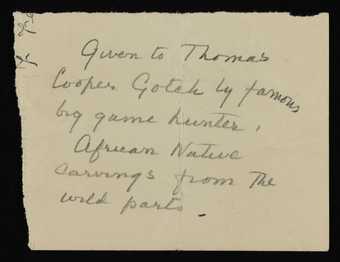 Given to Thomas
Cooper Gotch by famous
big game hunter,
African Native
carvings from The
wild parts